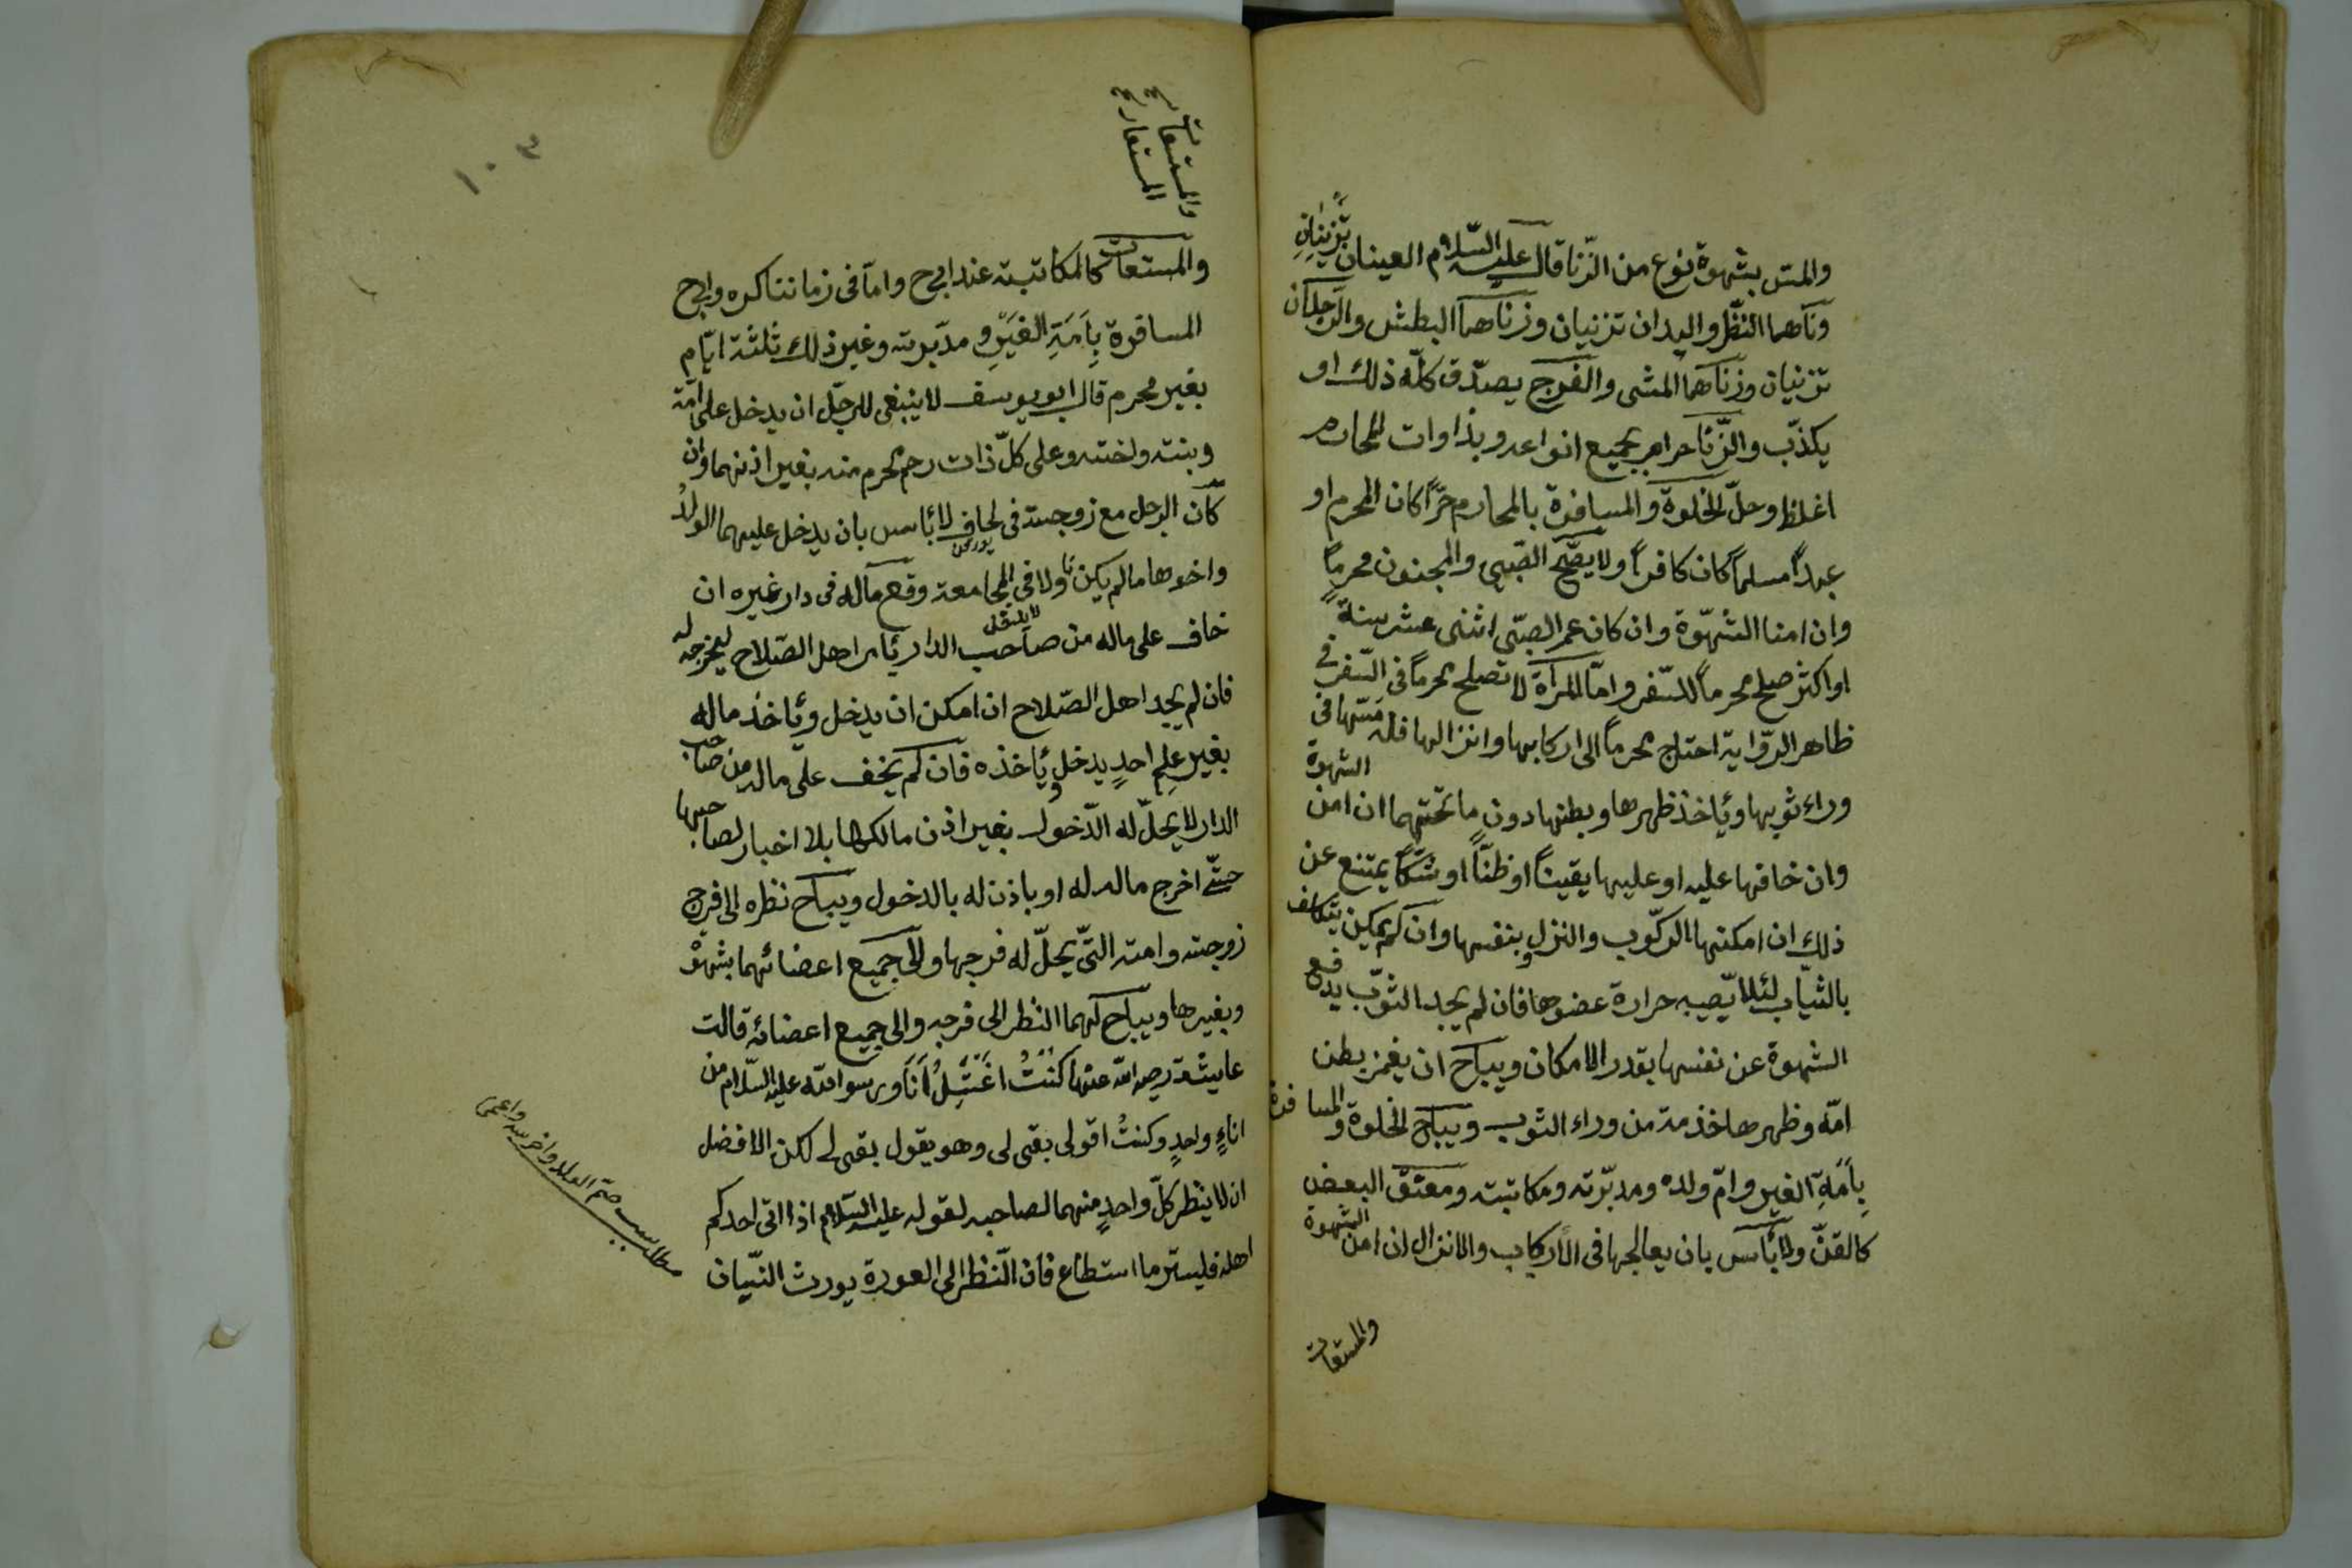 والمس بشهوة نوع من الزّنا قال عليه السّلام العينان تَزْنِيَانِ
وزناهما النّظر واليدان تزنيان وزناهما البطش والرّجلان
تزنيان وزناهما المشى والفرج يصدّق كلّه ذلك او
يكذّب والزّنا حرام بجميع انواعه وبذاوات المحارم
اغلظ وحلّ الخلوة والمسافرة بالمحارم حرّاً كان المحرم او
عبداً مسلماً كان كافراً ولا يصّح الصّبى والمجنون محرماً
وان امنا الشّهوّة وان كان عمر الصّبّى اثنى عشر سنةً
او اكثر صلح محرماً للسّفر وامّا المرأة لا تصلح محرماً فى السّفر فى
ظاهر الرّواية احتاج محرماً الى اركابها وانزالها فله مَسّها فى
الشهوة
وراء ثوبها ويأخذ ظهرها وبطنها دون ما تحتهما ان امن
وان خافها عليه او عليها يقيناً او ظنّاً او شكّاً يمتنع عن
ذلك ان امكنها الركّوب والنزول بنفسها وان لم يمكن يتكلف
بالثيّاب لئلا يّصيبه حرارة عضوها فان لم يجد الثوّب يدفع
الشهوة عن نفسها بقدر الامكان ويباح ان يغمز بطن
امّه وظهرها خذمة من وراء الثوب ويباح الخلوة والمسافرة
بِأَمَةِ الغير وامّ ولده ومدبّرته ومكاتبته ومعتق البعض
كالقنّ ولا بأس بان يعالجها فى الأركاب والانزال ان امن الشهوة
والمستعات
١٠٣
والمستعات كالمكاتبته عند ابى ح وامّا فى زماننا كره وابى ح
المسافرة بِأَمَةِ الغَيْرِ و مدّبرته وغير ذلك ثلثة ايّام
بغير محرم قال ابو يوسف لا ينبغى للرجّل ان يدخل على امّه
وبنته واخته وعلى كلّ ذات رحم محرم منه بغير اذنهما وان
كان الرجل مع زوجته فى لحاف لا بأس بان يدخل عليهما الولدُ
واخوها ما لم يكن ولا فى المجامعة وقع ماله فى دار غيره ان
خاف على ماله من صاحب الدار يأمر اهل الصّلاح ليخرجه له
فان لم يجد اهل الصّلاح ان امكن ان يدخل ويأخذ ماله
بغير علمِ احدٍ يدخل ويأخذه فان لم يخف على ماله من صاحب
الدار لا يحلّ له الدّخول بغير اذن مالكها بلا اخبار لصاحبها
حتّى اخرج ماله له او باذن له بالدخول ويباح نظره الى فرج
زوجته وامته التّى يحلّ له فرجها والى جميع اعضائهما بشهوة
وبغيرها ويباح لهما النظر الى فرجه والى جميع اعضائه قالت
عايشة رضى الله عنها كُنْتُ اغتسِلُ اَنَا ورسول الله عليه السّلام من
اناءٍ واحدٍ وكنتُ اقول بقى لى وهو يقول بقى لى لكن الافضل
ان لا ينظر كلّ واحدٍ منهما لصاحبه لقوله عليه السّلام اذا اتى احدكم
اهله فليستر ما استطاع فان النّظر الى العورة يورث النّيان
مطلب صمّ الولد واخرسه واعمى